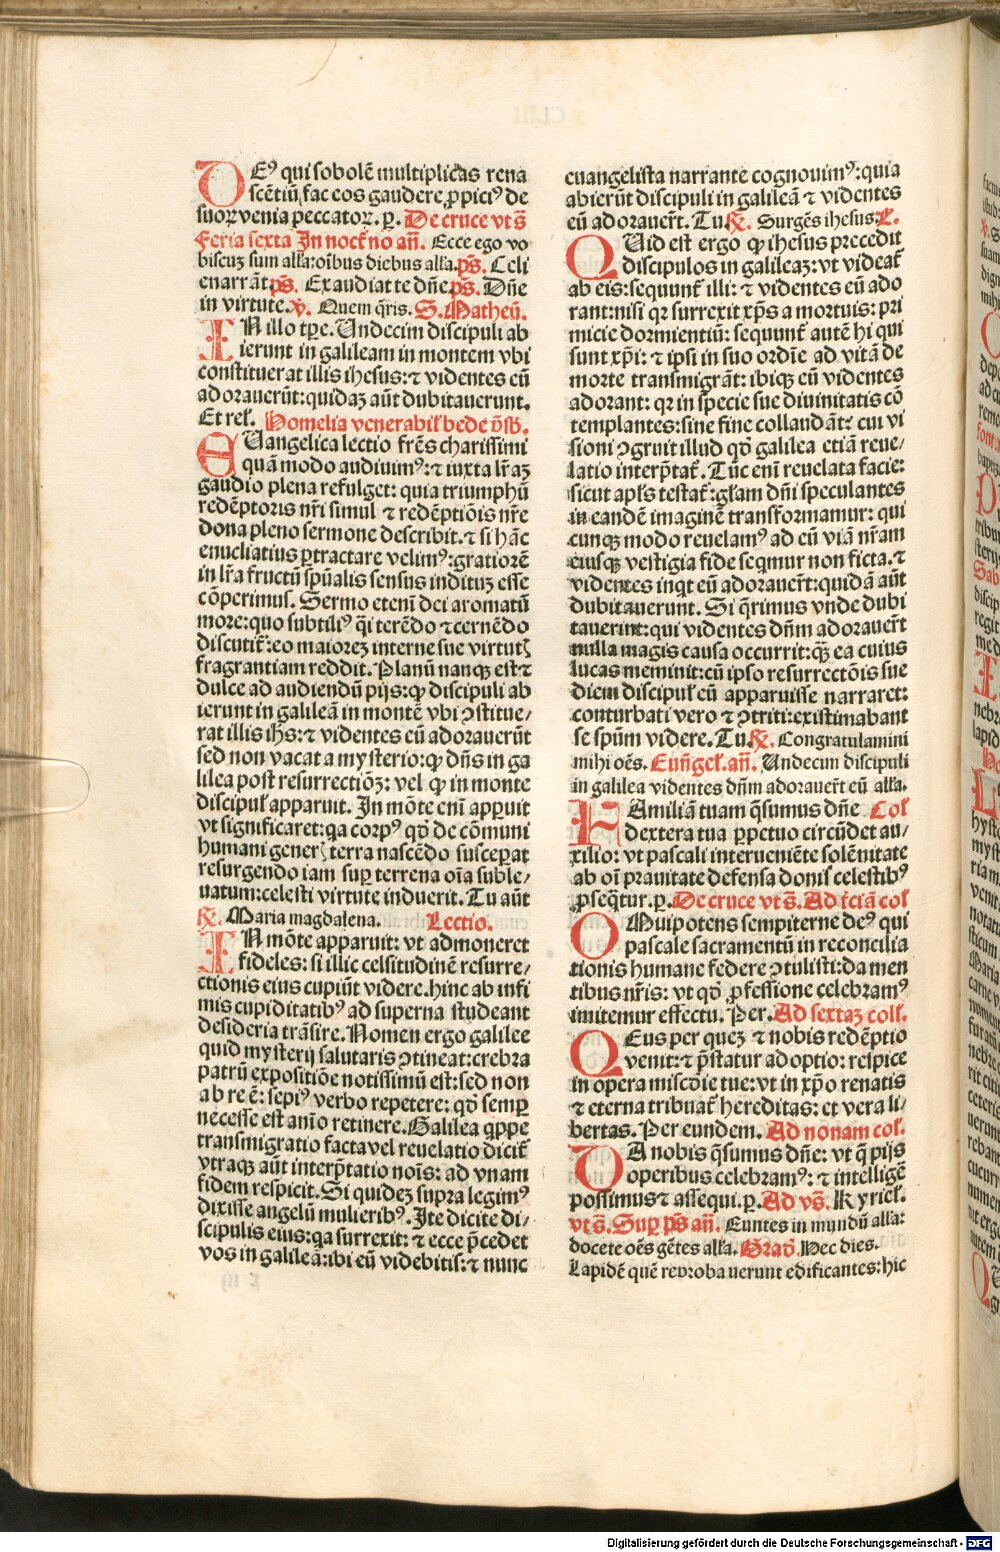 DEꝰ qui sobolē multiplicas rena
scētiū, fac eos gaudere ꝓpiciꝰ de
suoꝝ venia peccatoꝝ. ꝑ. De cruce vt s̄
feria sexta In noct̄no an̄. Ecce ego vo
biscuꝫ sum all'a: oībus diebus all'a. ps̄. Celi
enarrāt ps̄. Exaudiat te dn̄e ps̄. Dn̄e
in virtute. ꝟ. Quem q̄ris. S. Matheū.
IN illo tꝑe. Undecim discipuli ab
ierunt in galileam in montem vbi
constituerat illis ihesus: ⁊ videntes eū
adorauerūt: quidaꝫ aūt dubitauerunt.
Et rel'. Homelia venerabil' bede p̄sb̄.
EUangelica lectio fr̄es charissimi
quā modo audiuimꝰ: ⁊ iuxta lr̄aꝫ
gaudio plena refulget: quia triumphū
redēptoris nr̄i simul ⁊ redēptiōis nr̄e
dona pleno sermone describit. ⁊ si hāc
enucliatius ꝑtractare velimꝰ: gratiorē
in lr̄a fructū sp̄ualis sensus indituꝫ esse
cōperimus. Sermo etenī dei aromatū
more: quo subtiliꝰ q̄i terēdo ⁊ cernēdo
discutit̄: eo maioreꝫ interne sue virtutꝭ
fragrantiam reddit. Planū nanqꝫ est ⁊
dulce ad audiendū pijs: ꝙ discipuli ab
ierunt in galileā in montē vbi ꝯstitue/
rat illis ih̄s: ⁊ videntes eū adorauerūt
sed non vacat a mysterio: ꝙ dn̄s in ga
lilea post resurrectiōꝫ: vel ꝙ in monte
discipul' apparuit. In mōte enī apꝑuit
vt significaret: qa corpꝰ qd̄ de cōmuni
humani generꝭ terra nascēdo susceꝑat
resurgendo iam suꝑ terrena oīa suble/
uatum: celesti virtute induerit. Tu aūt
℟. Maria magdalena. Lectio.
IN mōte apparuit: vt admoneret
fideles: si illic celsitudinē resurre/
ctionis eius cupiūt videre. hinc ab infi
mis cupiditatibꝰ ad superna studeant
desideria trāsire. Nomen ergo galilee
quid mysterij salutaris ꝯtineat: crebra
patrū expositiōe notissimū est: sed non
ab re ē: sepiꝰ verbo repetere: qd̄ semꝑ
necesse est anīo retinere. Galilea qꝑpe
transmigratio facta vel reuelatio dicit̄
vtraqꝫ aūt interp̄tatio noīs: ad vnam
fidem respicit. Si quideꝫ supra legimꝰ
dixisse angelū mulieribꝰ. Ite dicite di/
scipulis eius: qa surrexit: ⁊ ecce p̄cedet
vos in galileā: ibi eū videbitis: ⁊ nunc
euangelista narrante cognouimꝰ: quia
abierūt discipuli in galileā ⁊ videntes
eū adorauer̄t. Tu ℟. Surgēs ihesus. L.
QUid est ergo ꝙ ihesus precedit
discipulos in galileaꝫ: vt videat̄
ab eis: sequunt̄ illi: ⁊ videntes eū ado
rant: nisi qꝛ surrexit xp̄s a mortuis: pri
micie dormientiū: sequunt̄ autē hi qui
sunt xp̄i: ⁊ ipsi in suo ordīe ad vitā de
morte transmigrāt: ibiqꝫ eū videntes
adorant: qꝛ in specie sue diuinitatis cō
templantes: sine fine collaudāt: cui vi
sioni ꝯgruit illud qd̄ galilea etiā reue/
latio interp̄tat̄. Tūc enī reuelata facie:
sicut apl's testat̄: gl'am dn̄i speculantes
in eandē imaginē transformamur: qui
cunqꝫ modo reuelamꝰ ad eū viā nr̄am
eiusqꝫ vestigia fide seqmur non ficta. ⁊
videntes inqt eū adorauer̄t: quidā aūt
dubitauerunt. Si q̄rimus vnde dubi
tauerint: qui videntes dn̄m adorauer̄t
nulla magis causa occurrit: qꝫ ea cuius
lucas meminit: cū ipso resurrectōis sue
diem discipul' eū apparuisse narraret:
conturbati vero ⁊ ꝯtriti: existimabant
se spūm videre. Tu ℟. Congratulamini
mihi oēs. Eun̄gel'. an̄. Undecim discipuli
in galilea videntes dn̄m adorauer̄t eū all'a.
FAmiliā tuam q̄sumus dn̄e Col'
dextera tua ꝑpetuo circūdet au/
xilio: vt pascali interueniēte solēnitate
ab oī prauitate defensa donis celestibꝰ
ꝓseq̄tur. ꝑ. De cruce vt s̄. Ad t̄ciā col'
OMnipotens sempiterne deꝰ qui
pascale sacramentū in reconcilia
tionis humane federe ꝯtulisti: da men
tibus nr̄is: vt qd̄ ꝓfessione celebramꝰ
imitemur effectu. Per. Ad sextaꝫ coll'.
DEus per queꝫ ⁊ nobis redēptio
venit: ⁊ p̄statur adoptio: respice
in opera miscd̄ie tue: vt in xp̄o renatis
⁊ eterna tribuat̄ hereditas: et vera li/
bertas. Per eundem. Ad nonam col'.
DA nobis q̄sumus dn̄e: vt q̄ pijs
operibus celebramꝰ: ⁊ intelligē
possimus ⁊ assequi. ꝑ. Ad vs̄. Kyriel'.
vt s̄. Suꝑ ps̄ an̄. Euntes in mundū all'a:
docete oēs gētes all'a. Grad̄. Hec dies.
Lapidē quē reprobauerunt edificantes: hic
Digitalisierung gefördert durch die Deutsche Forschungsgemeinschaft - DFG